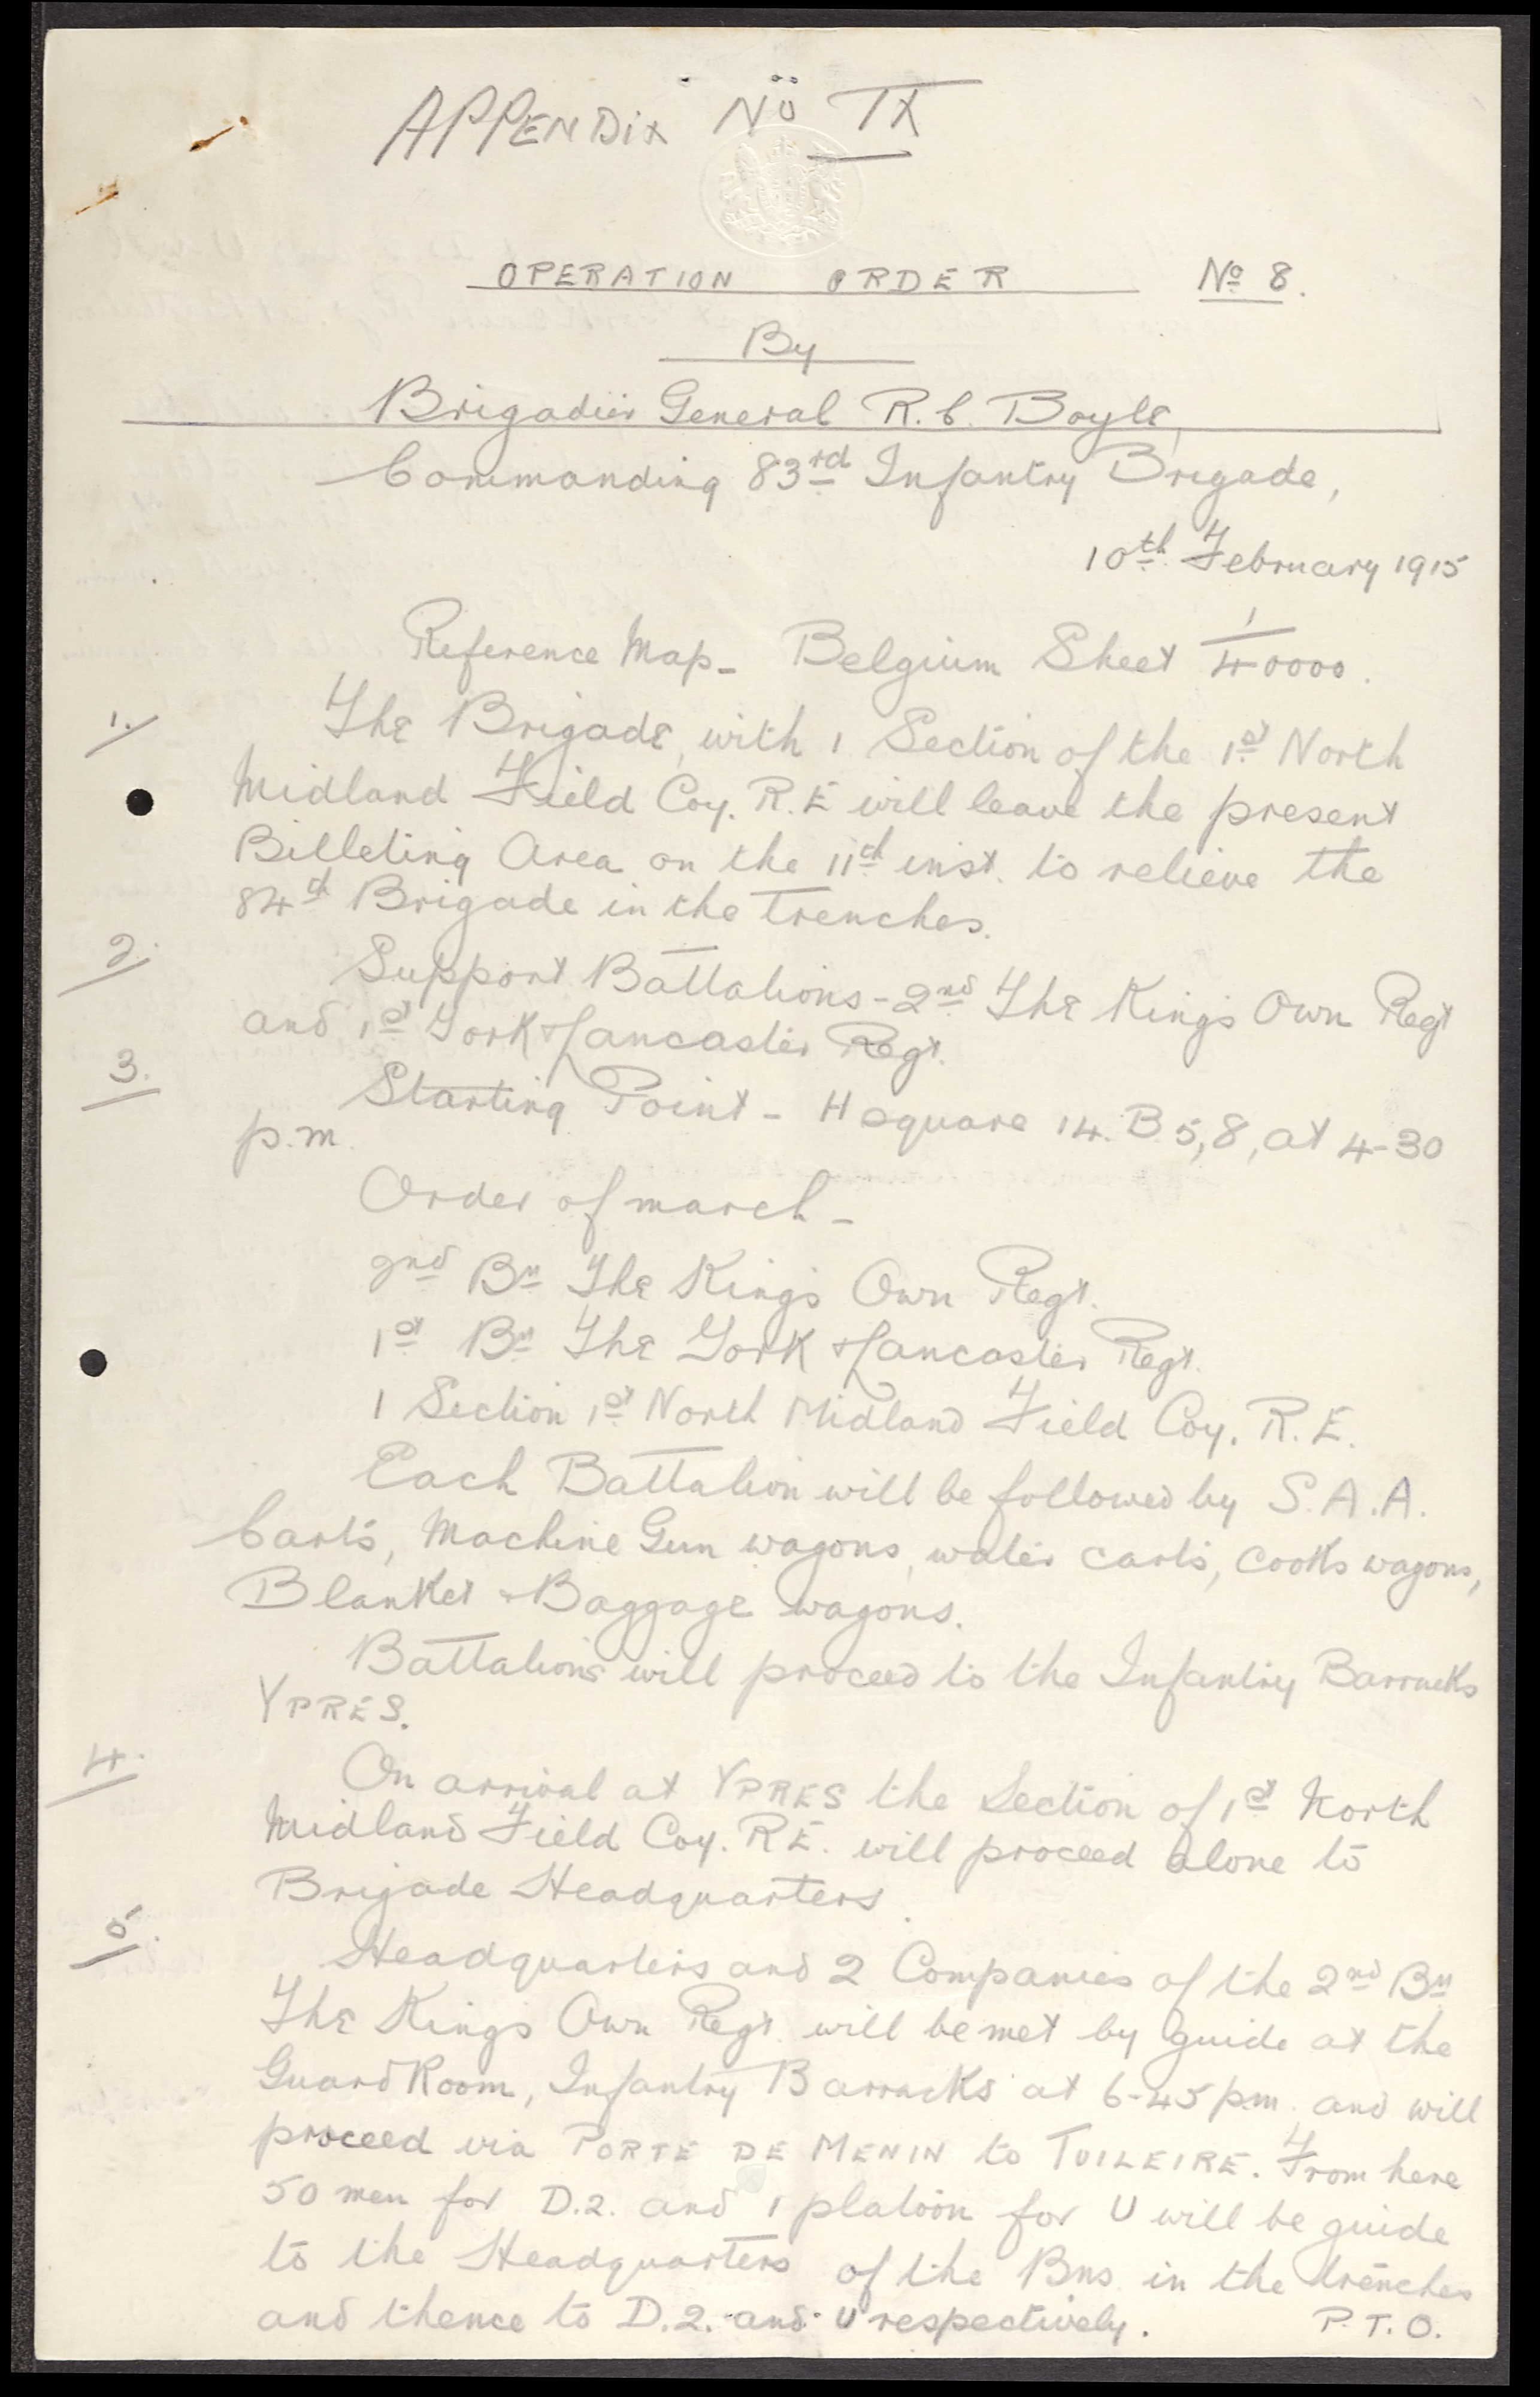 APPENDIX No IX
OPERATION ORDER No 8.
By
Brigadier General R.C. Boyle,
Commanding 83rd Infantry Brigade,
10th February 1915
Reference Map - Belgium Sheet 1/40000.
1. The Brigade, with 1 Section of the 1st North
Midland Field Coy. R.E will leave the present
Billeting Area on the 11th inst. to relieve the
84th Brigade in the Trenches.
2. Support Battalions - 2nd The Kings Own Regt
and 1st York & Lancaster Regt.
3. Starting Point - H square 14. B 5,8, at 4-30
p.m.
Order of march -
2nd Bn The King's Own Regt.
1st Bn The York & Lancaster Regt.
1 Section 1st North Midland Field Coy. R.E.
Each Battalion will be followed by S.A.A.
Carts, Machine Gun wagons, water carts, cooks wagons,
Blanket & Baggage wagons.
Battalions will proceed to the Infantry Barracks
YPRES.
4. On arrival at YPRES the Section of 1st North
Midland Field Coy. R.E. will proceed alone to
Brigade Headquarters.
5. Headquarters and 2 Companies of the 2nd Bn
The Kings Own Regt will be met by guide at the
Guard Room, Infantry Barracks at 6-45 p.m. and will
proceed via PORTE DE MENIN to TUILEIRE. From here
50 men for D.2. and 1 platoon for U will be guide
to the Headquarters of the Bns in the trenches
and thence to D.2. and U respectively. P.T.O.